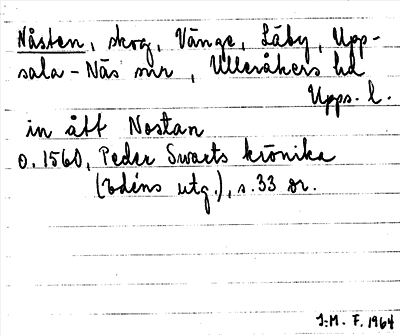 Nåsten, skog, Vänge, Läby, Upp-
sala-Näs snr, Ulleråkers hd
Upps. l.
inått Nostan
o. 1560, Peder Swarts krönika
(Edéns utg.), s. 33 or.
I:M. F. 1964